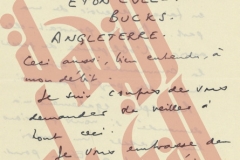 ETON COLLE
BUCKS.
ANGLETERRE.
Ceci aussi, bien entendu, à
mon débit.
Je suis confus de vous
demander de veiller à
tout ceci.
Je vous embrasse